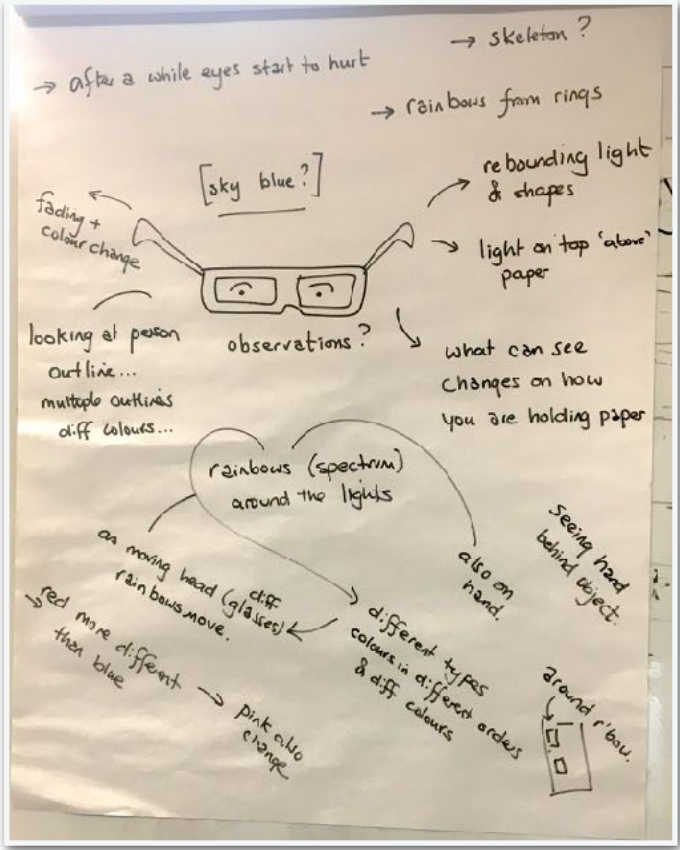 → skeleton?
→ after a while eyes start to hurt
→ rainbows from rings
[sky blue?]
rebounding light
& shapes
fading +
colour change
light on top 'above'
paper
observations?
looking at person
outline...
multiple outlines
diff colours...
what can see
changes on how
you are holding paper
rainbows (spectrum)
around the lights
on moving head (glasses)
diff
rainbows move.
also on
hand.
seeing hand
behind object.
different types
colours in different orders
& diff colours
red more different
than blue
→ pink also
change
around r'bow.